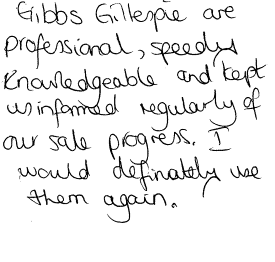 Gibbs Gillespie are
professional, speedy
knowledgeable and kept
us informed regularly of
our sale progress. I
would definately use
them again.